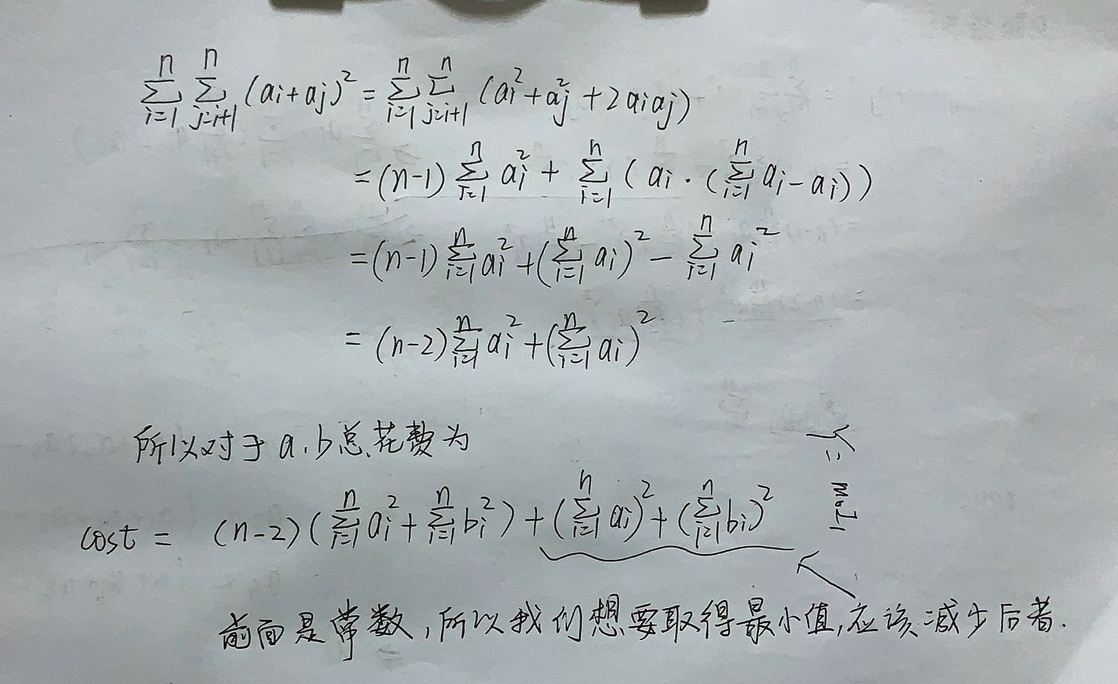 $\sum_{i=1}^{n} \sum_{j=i+1}^{n} (a_i+a_j)^2 = \sum_{i=1}^{n} \sum_{j=i+1}^{n} (a_i^2+a_j^2+2a_ia_j)$
$=(n-1) \sum_{i=1}^{n} a_i^2 + \sum_{i=1}^{n} (a_i \cdot (\sum_{i=1}^{n} a_i - a_i))$
$=(n-1) \sum_{i=1}^{n} a_i^2 + (\sum_{i=1}^{n} a_i)^2 - \sum_{i=1}^{n} a_i^2$
$=(n-2) \sum_{i=1}^{n} a_i^2 + (\sum_{i=1}^{n} a_i)^2$
所以对于a,b总花费为
cost = $(n-2)(\sum_{i=1}^{n} a_i^2 + \sum_{i=1}^{n} b_i^2) + (\sum_{i=1}^{n} a_i)^2 + (\sum_{i=1}^{n} b_i)^2$
前面是常数,所以我们想要取得最小值,应该减少后者.